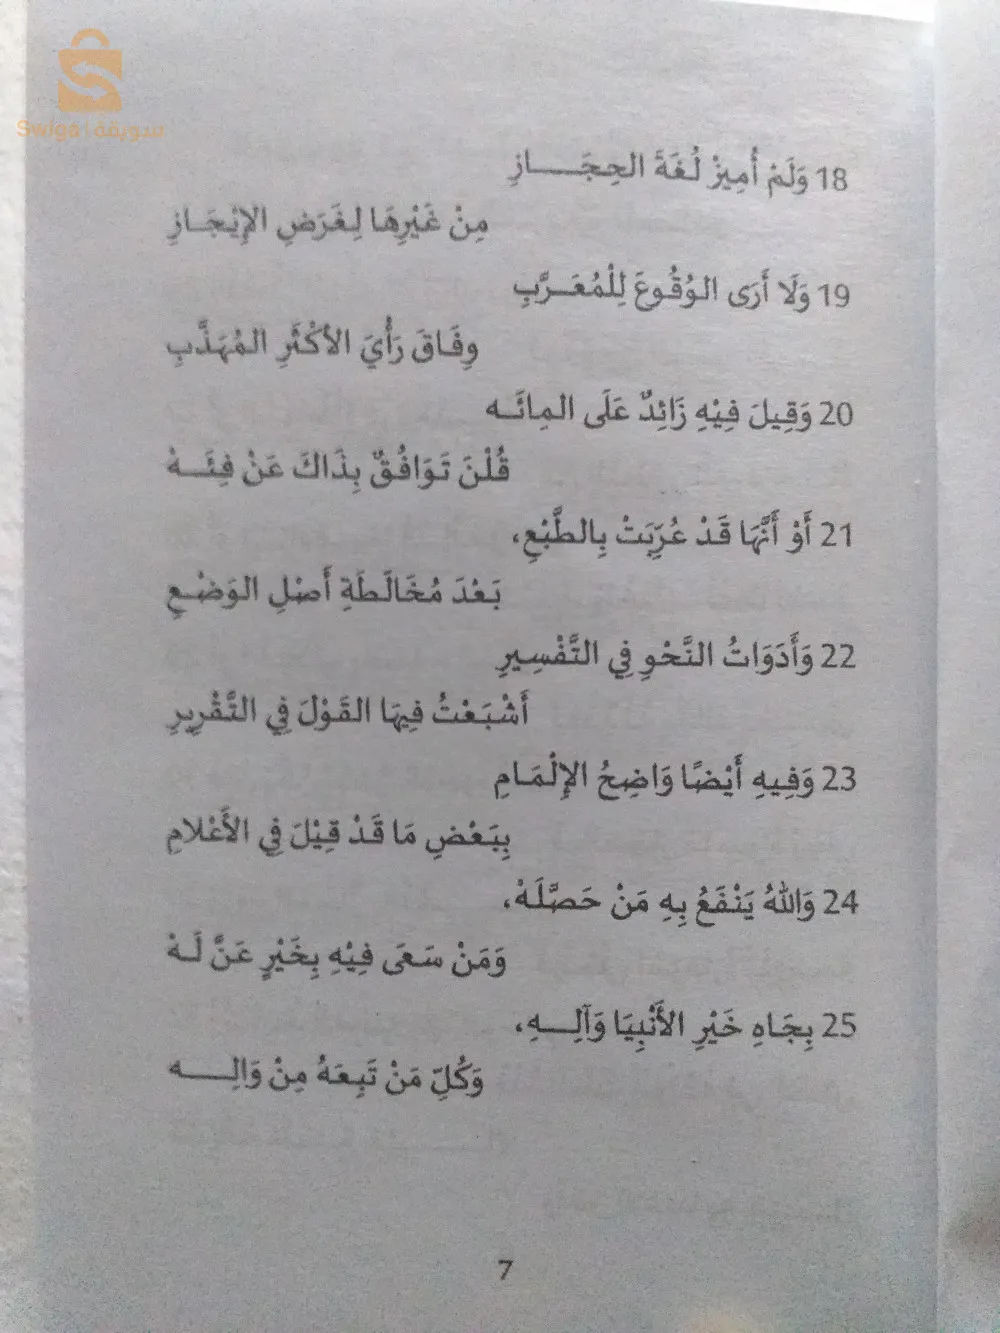 Swiga | سويقة
18 وَلَمْ أُمِيزْ لُغَةَ الحِجَــــازِ
مِنْ غَيْرِهَا لِغَرَضِ الإِيْجَـازِ
19 وَلَا أَرَى الوُقُوعَ لِلْمُعَــرَّبِ
وِفَاقَ رَأْيَ الأكْثَرِ المُهَذَّبِ
20 وَقِيلَ فِيْهِ زَائِدٌ عَلَى المِائَـه
قُلْنَ تَوَافُقٌ بِذَاكَ عَنْ فِئَــهْ
21 أَوْ أَنَّهَا قَدْ عُرِّبَتْ بِالطَّبْعِ،
بَعْدَ مُخَالَطَةِ أَصْلِ الوَضْـعِ
22 وَأَدَوَاتُ النَّحْوِ فِي التَّفْسِيرِ
أَشْبَعْتُ فِيهَا القَوْلَ فِي التَّقْرِيرِ
23 وَفِيهِ أَيْضًا وَاضِحُ الإِلْمَـامِ
بِبَعْضِ مَا قَدْ قِيْلَ فِي الأَعْلامِ
24 وَاللهُ يَنْفَعُ بِهِ مَنْ حَصَّلَهْ،
وَمَنْ سَعَى فِيْهِ بِخَيْرٍ عَنَّ لَـهْ
25 بِجَاهِ خَيْرِ الأَنْبِيَا وَآلِـــهِ،
وَكُلِّ مَنْ تَبِعَهُ مِنْ وَالِــــه
7